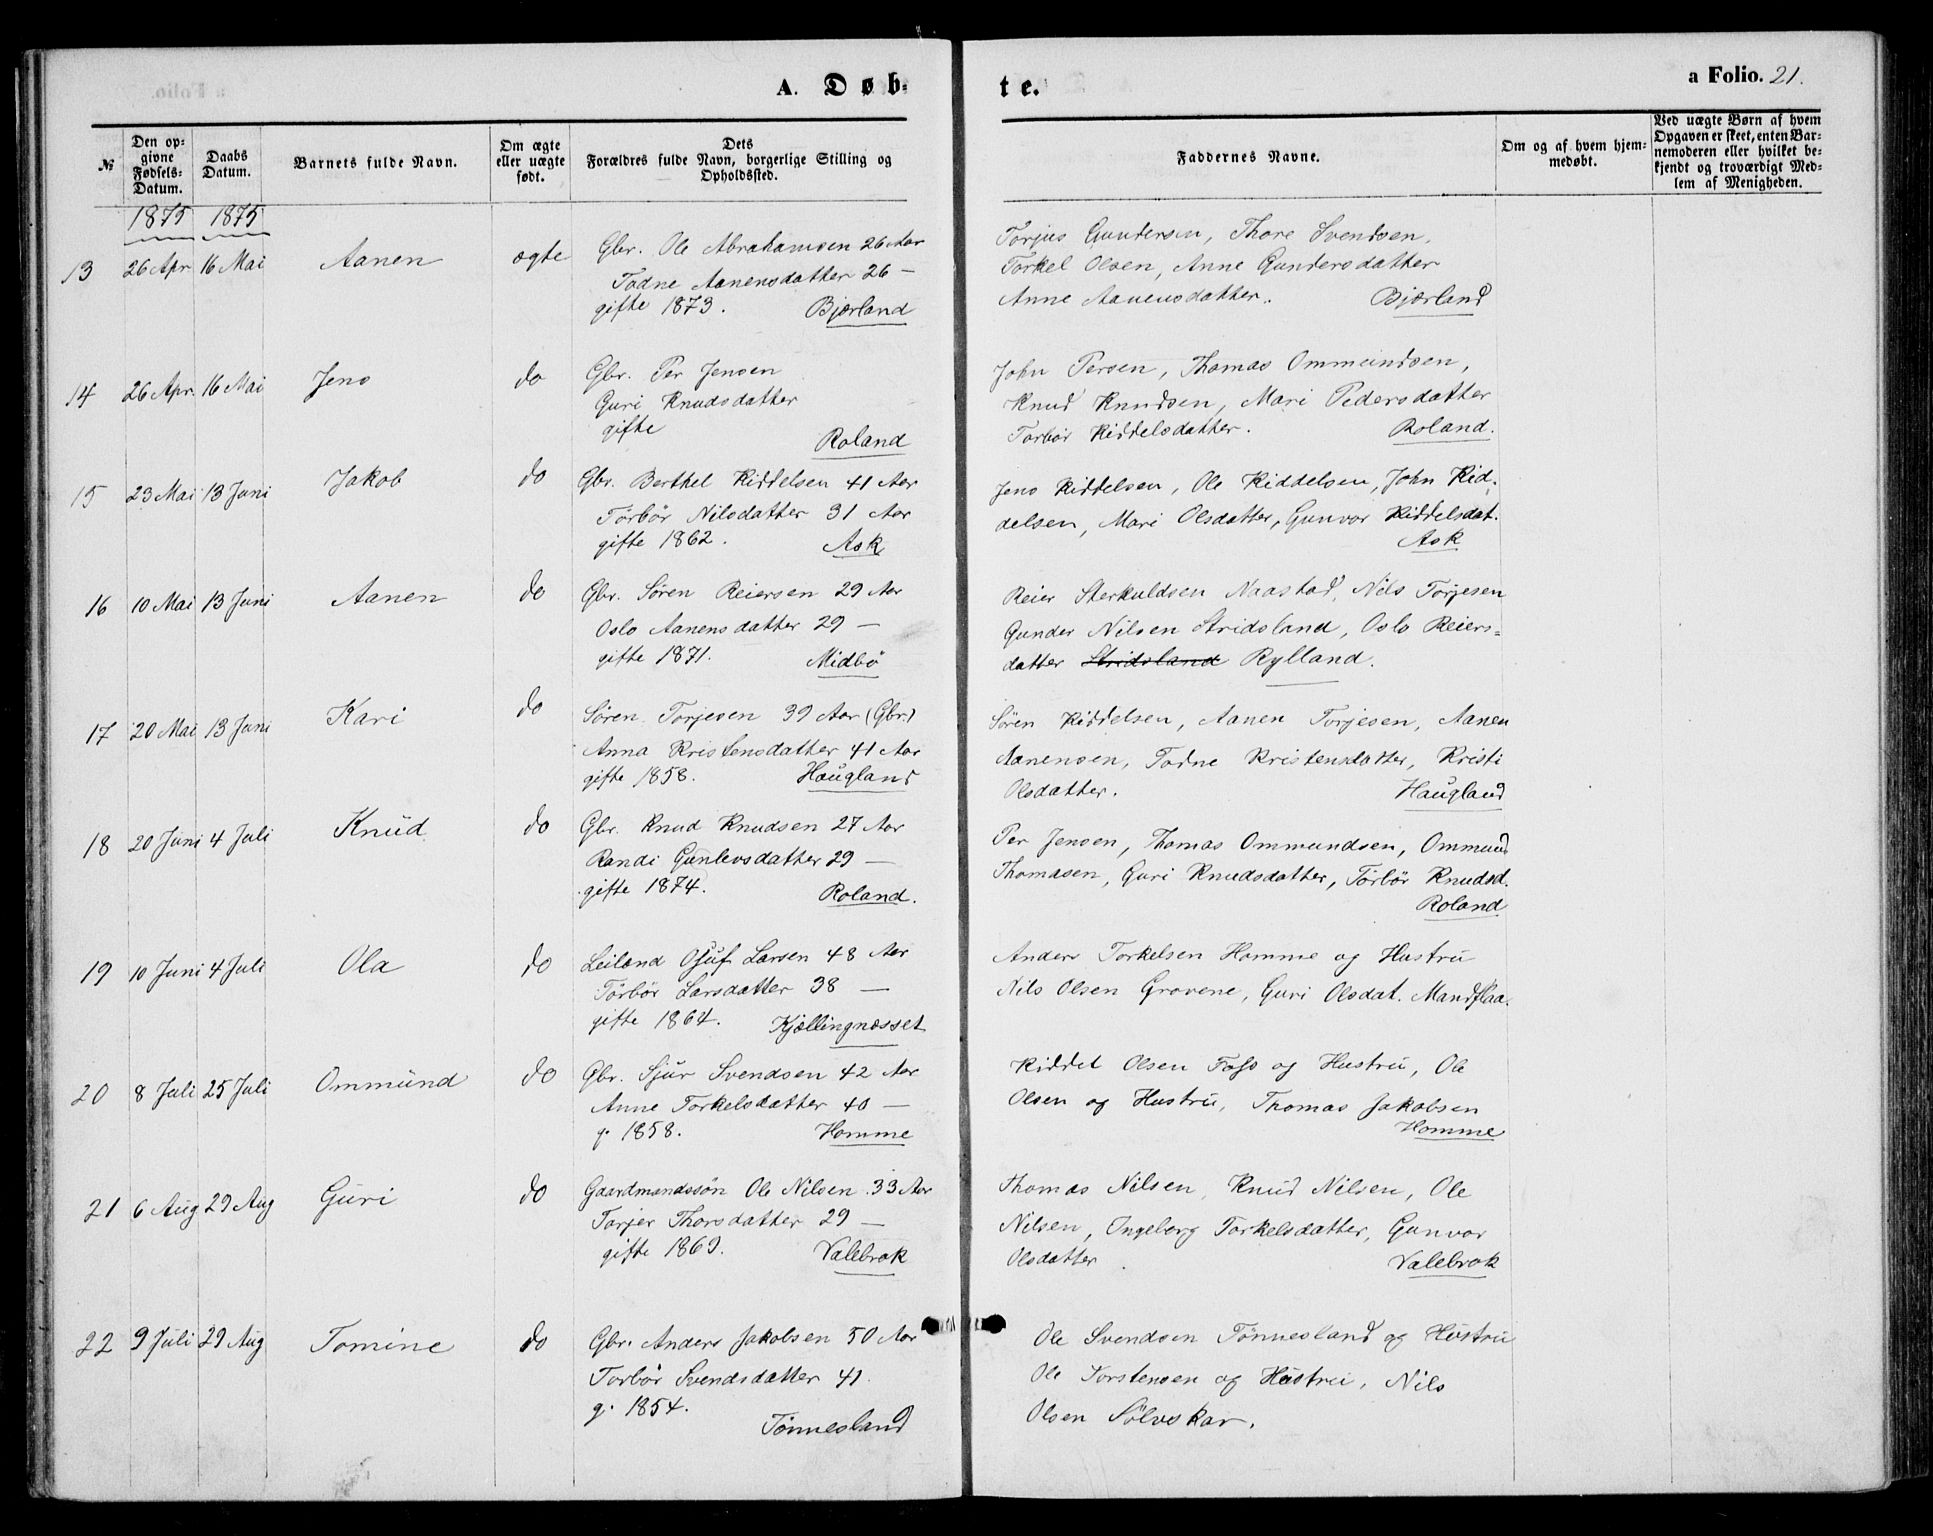 A. Døb-
te.
a Folio. 21.
№
Den opgivne Fødsels-Datum.
Daabs Datum.
Barnets fulde Navn.
Om ægte eller uægte født.
Dets Forældres fulde Navn, borgerlige Stilling og Opholdssted.
Faddernes Navne.
Om og af hvem hjemmedøbt.
Ved uægte Børn af hvem Opgaven er skeet, enten Barnemoderen eller hvilket bekjendt og troværdigt Medlem af Menigheden.
1875 1875
13 26 Apr 16 Mai Aanen ægte
Gbr. Ole Abrahamsen 26 Aar
Todne Aanensdatter 26 —
gifte 1873. Bjørland
Torjus Gundersen, Thore Svendsen,
Torkel Olsen, Anne Gundersdatter
Anne Aanensdatter. Bjørland
14 26 Apr. 16 Mai Jens do
Gbr. Per Jensen
Guri Knudsdatter
gifte
Roland
John Persen, Thomas Ommundsen,
Knud Knudsen, Mari Pedersdatter
Torbör Kiddelsdatter. Roland.
15 23 Mai 13 Juni Jakob do
Gbr. Berthel Kiddelsen 41 Aar
Törbör Nilsdatter 31 Aar
gifte 1862. Ask
Jens Kiddelsen, Ole Kiddelsen, John Kid-
delsen, Mari Olsdatter, Gunvor Kiddelsdat.
Ask
16 10 Mai 13 Juni Aanen do
Gbr. Sören Reiersen 29 Aar
Oslo Aanensdatter 29 —
gifte 1871. Midbö
Reier Sterkuldsen Naastad, Nils Torjesen
Gunder Nilsen Stridsland, Oslo Reiers-
datter Stridsland Rylland.
17 20 Mai 13 Juni Kari do
Sören Torjesen 39 Aar (Gbr.)
Anna Kristensdatter 41 Aar
gifte 1858. Haugland
Sören Kiddelsen, Aanen Torjesen, Aanen
Aanensen, Todne Kristensdatter, Kristi
Olsdatter. Haugland
18 20 Juni 4 Juli Knud do
Gbr. Knud Knudsen 27 Aar
Randi Gunlevsdatter 29 —
gifte 1874. Roland.
Per Jensen, Thomas Ommundsen, Ommund
Thomasen, Guri Knudsdatter, Törbör Knudsd.
Roland
19 10 Juni 4 Juli Ola do
Leiland Osuf Larsen 48 Aar
Törbör Larsdatter 38 —
gifte 1864. Kjællingnæsset
Anders Torkelsen Homme og Hustru
Nils Olsen Grovene, Guri Olsdat. Mandflaa.
20 8 Juli 25 Juli Ommund do
Gbr. Sjur Svendsen 42 Aar
Anne Torkelsdatter 40 —
g. 1858. Homme
Kiddel Olsen Foss og Hustru, Ole
Olsen og Hustru, Thomas Jakobsen
Homme
21 6 Aug 29 Aug Guri do
Gaardmandssön Ole Nilsen 33 Aar
Torjer Thorsdatter 29 —
gifte 1869. Valebrok
Thomas Nilsen, Knud Nilsen, Ole
Nilsen, Ingeborg Torkelsdatter, Gunvor
Olsdatter Valebrok
22 9 Juli 29 Aug Tomine do
Gbr. Anders Jakobsen 50 Aar
Torbör Svendsdatter 41.
g. 1854.
Tönnesland
Ole Svendsen Tönnesland og Hustru
Ole Torstensen og Hustru, Nils
Olsen Sölvskar.